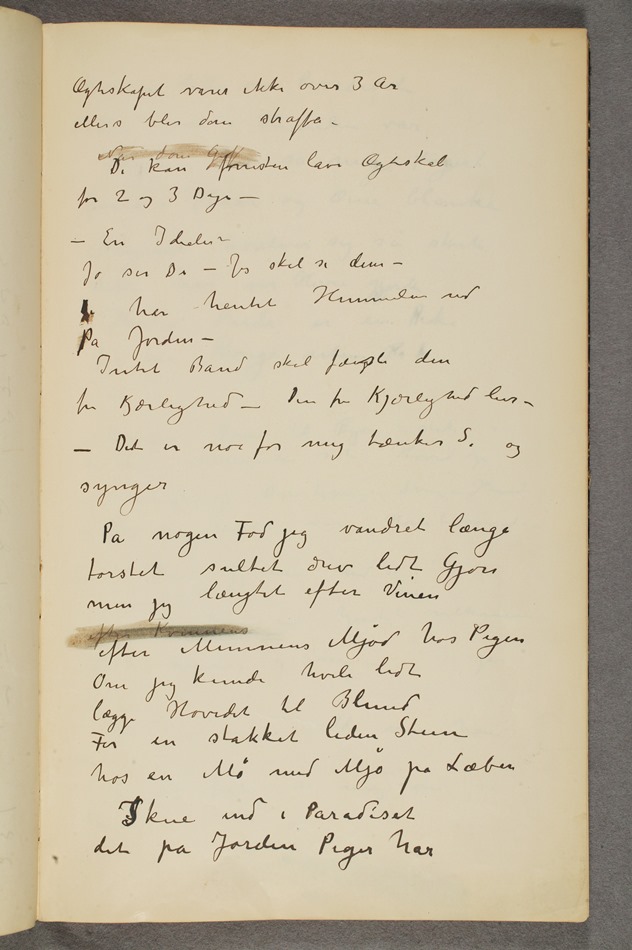 Ægteskapet varer ikke over 3 År
ellers blir dom straffa –
Når dom Gift
De kan forresten lave Ægteskab
for 2 og 3 Dage –
– En Idealist
Jo ser De – Jo skal se dem –
har hentet Himmelen ned
På Jorden –
Intet Band skal fængsle den
fri Kjærlighed – Den fri Kjærlighed leve –
– Det er noe for mig tænker S. og
synger
På nøgen Fod jeg vandret længe
tørstet sultet drev lidt Gjøn
men jeg længtet efter Vinen
efter Kvinnens
efter Minnens Mjød hos Pigen
Om jeg kunde hvile lidt
lægge Hovedet til Blund
For en stakket liden Stun
hos en Mø med Mjø på Læben
Skue ind i Paradiset
det på Jorden Piger har